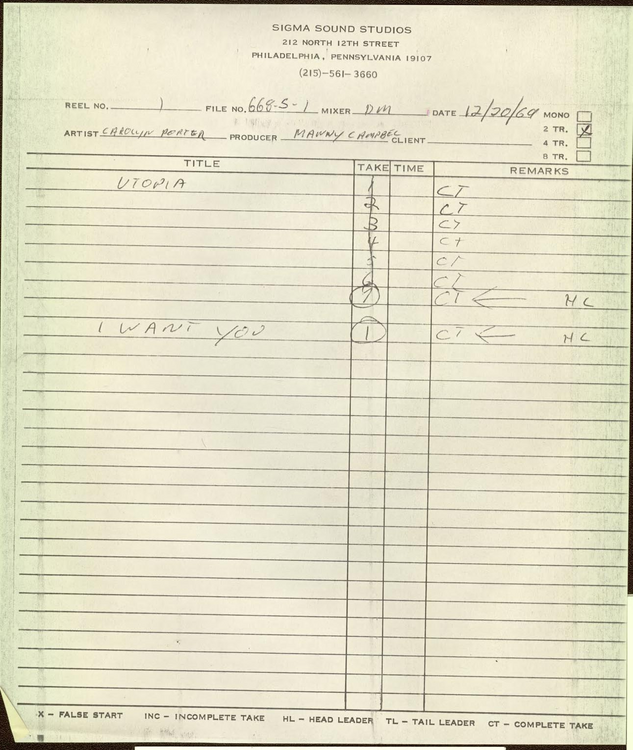 SIGMA SOUND STUDIOS
212 NORTH 12TH STREET
PHILADELPHIA, PENNSYLVANIA 19107
(215)-561-3660
REEL NO. 1 FILE NO. 668-S-1 MIXER DM DATE 12/20/69 MONO
2 TR. X
ARTIST CAROLYN PORTER PRODUCER MANNY CAMPBEL CLIENT 4 TR.
8 TR.
TITLE TAKE TIME REMARKS
UTOPIA 1 CT
2 CT
3 CT
4 CT
5 CT
6 CT
7 CT ← HL
I WANT YOU 1 CT ← HL
X - FALSE START INC - INCOMPLETE TAKE HL - HEAD LEADER TL - TAIL LEADER CT - COMPLETE TAKE